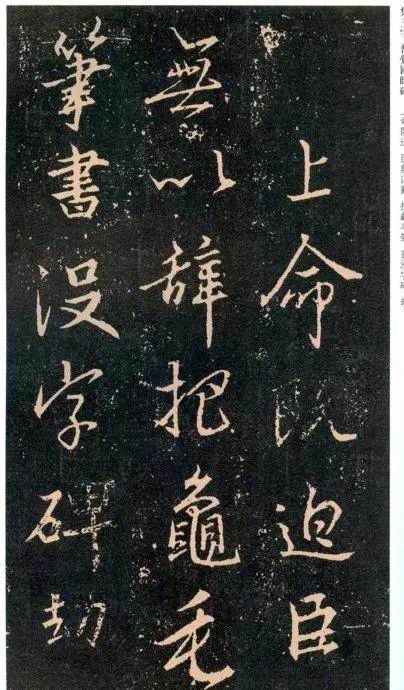 上命既迫臣
無以辞把龜毛
筆書没字碑劫